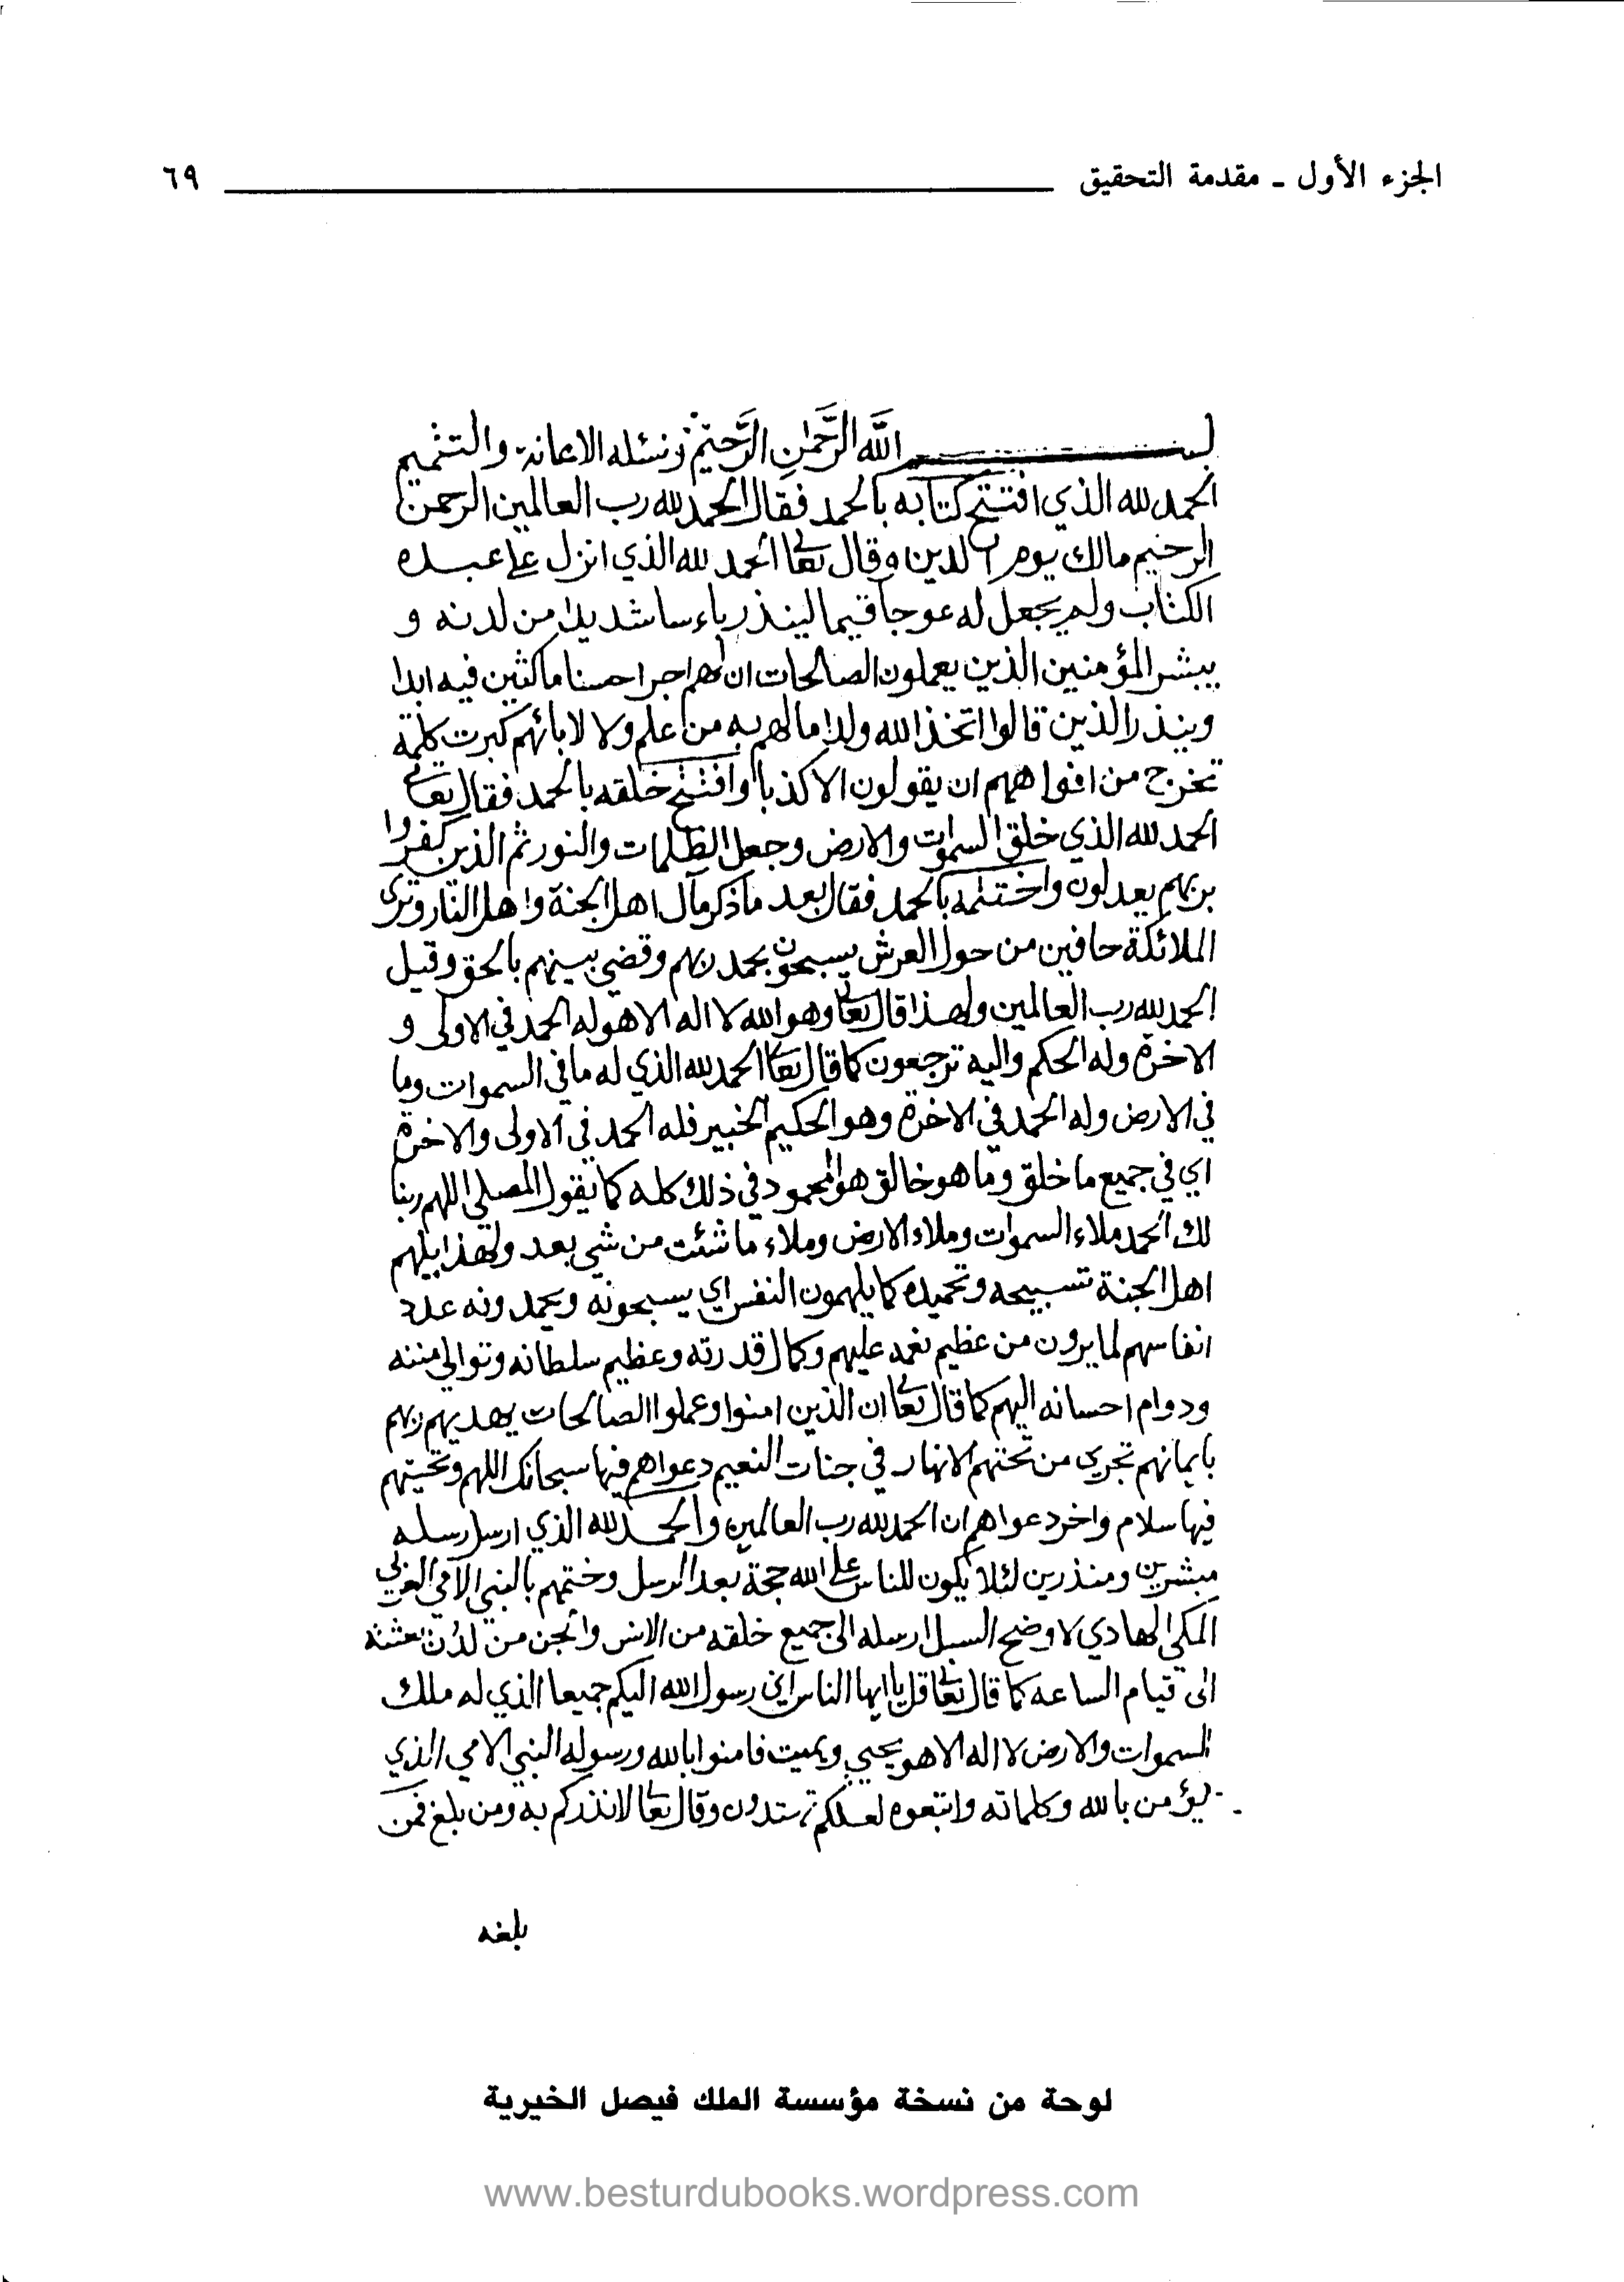 الجزء الأول ـ مقدمة التحقيق ٦٩
بسم الله الرَّحمٰنِ الرَّحيمِ ونسئله الاعانة والتتميم
الحمد لله الذي افتتح كتابه بالحمد فقال الحمد لله رب العالمين الرحمن
الرحيم مالك يوم الدين وقال تعالى الحمد لله الذي انزل على عبده
الكتاب ولم يجعل له عوجا قيما لينذر باءسا شديدا من لدنه و
يبشر المؤمنين الذين يعملون الصالحات ان لهم اجرا حسنا ماكثين فيه ابدا
وينذر الذين قالوا اتخذ الله ولدا ما لهم به من علم ولا لابائهم كبرت كلمة
تخرج من افواههم ان يقولون الا كذبا وافتتح خلقه بالحمد فقال تعالى
الحمد لله الذي خلق السموات والارض وجعل الظلمات والنور ثم الذين كفروا
بربهم يعدلون واختتمه بالحمد فقال بعد ما ذكر مآل اهل الجنة واهل النار وترى
الملائكة حافين من حول العرش يسبحون بحمد ربهم وقضي بينهم بالحق وقيل
الحمد لله رب العالمين ولهذا قال تعالى وهو الله لا اله الا هو له الحمد في الاولى و
الاخرة وله الحكم واليه ترجعون كما قال تعالى الحمد لله الذي له ما في السموات وما
في الارض وله الحمد في الاخرة وهو الحكيم الخبير فله الحمد في الاولى والاخرة
اي في جميع ما خلق وما هو خالق هو المحمود في ذلك كله كما يقول المصلي اللهم ربنا
لك الحمد ملاء السموات وملاء الارض وملاء ما شئت من شي بعد ولهذا يلهم
اهل الجنة تسبيحه وتحميده كما يلهمون النفس اي يسبحونه ويحمدونه عدد
انفاسهم لما يرون من عظيم نعمه عليهم وكمال قدرته وعظيم سلطانه وتوالي مننه
ودوام احسانه اليهم كما قال تعالى ان الذين امنوا وعملوا الصالحات يهديهم ربهم
بايمانهم تجري من تحتهم الانهار في جنات النعيم دعواهم فيها سبحانك اللهم وتحيتهم
فيها سلام واخر دعواهم ان الحمد لله رب العالمين والحمد لله الذي ارسل رسله
مبشرين ومنذرين لئلا يكون للناس على الله حجة بعد الرسل وختمهم بالنبي الامي العربي
المكي الهادي لاوضح السبل ارسله الى جميع خلقه من الانس والجن من لدن بعثته
الى قيام الساعه كما قال تعالى قل يا ايها الناس اني رسول الله اليكم جميعا الذي له ملك
السموات والارض لا اله الا هو يحيي ويميت فامنوا بالله ورسوله النبي الامي الذي
يؤمن بالله وكلماته واتبعوه لعلكم تهتدون وقال تعالى لانذركم به ومن بلغ فمن
بلغه
لوحة من نسخة مؤسسة الملك فيصل الخيرية
www.besturdubooks.wordpress.com